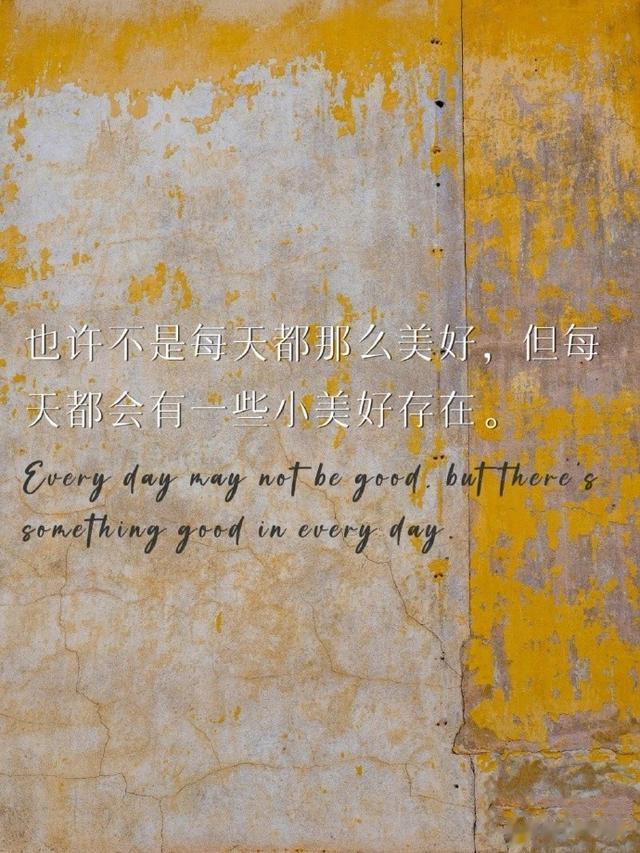 也许不是每天都那么美好，但每
天都会有一些小美好存在。
Every day may not be good. but there's
something good in every day.